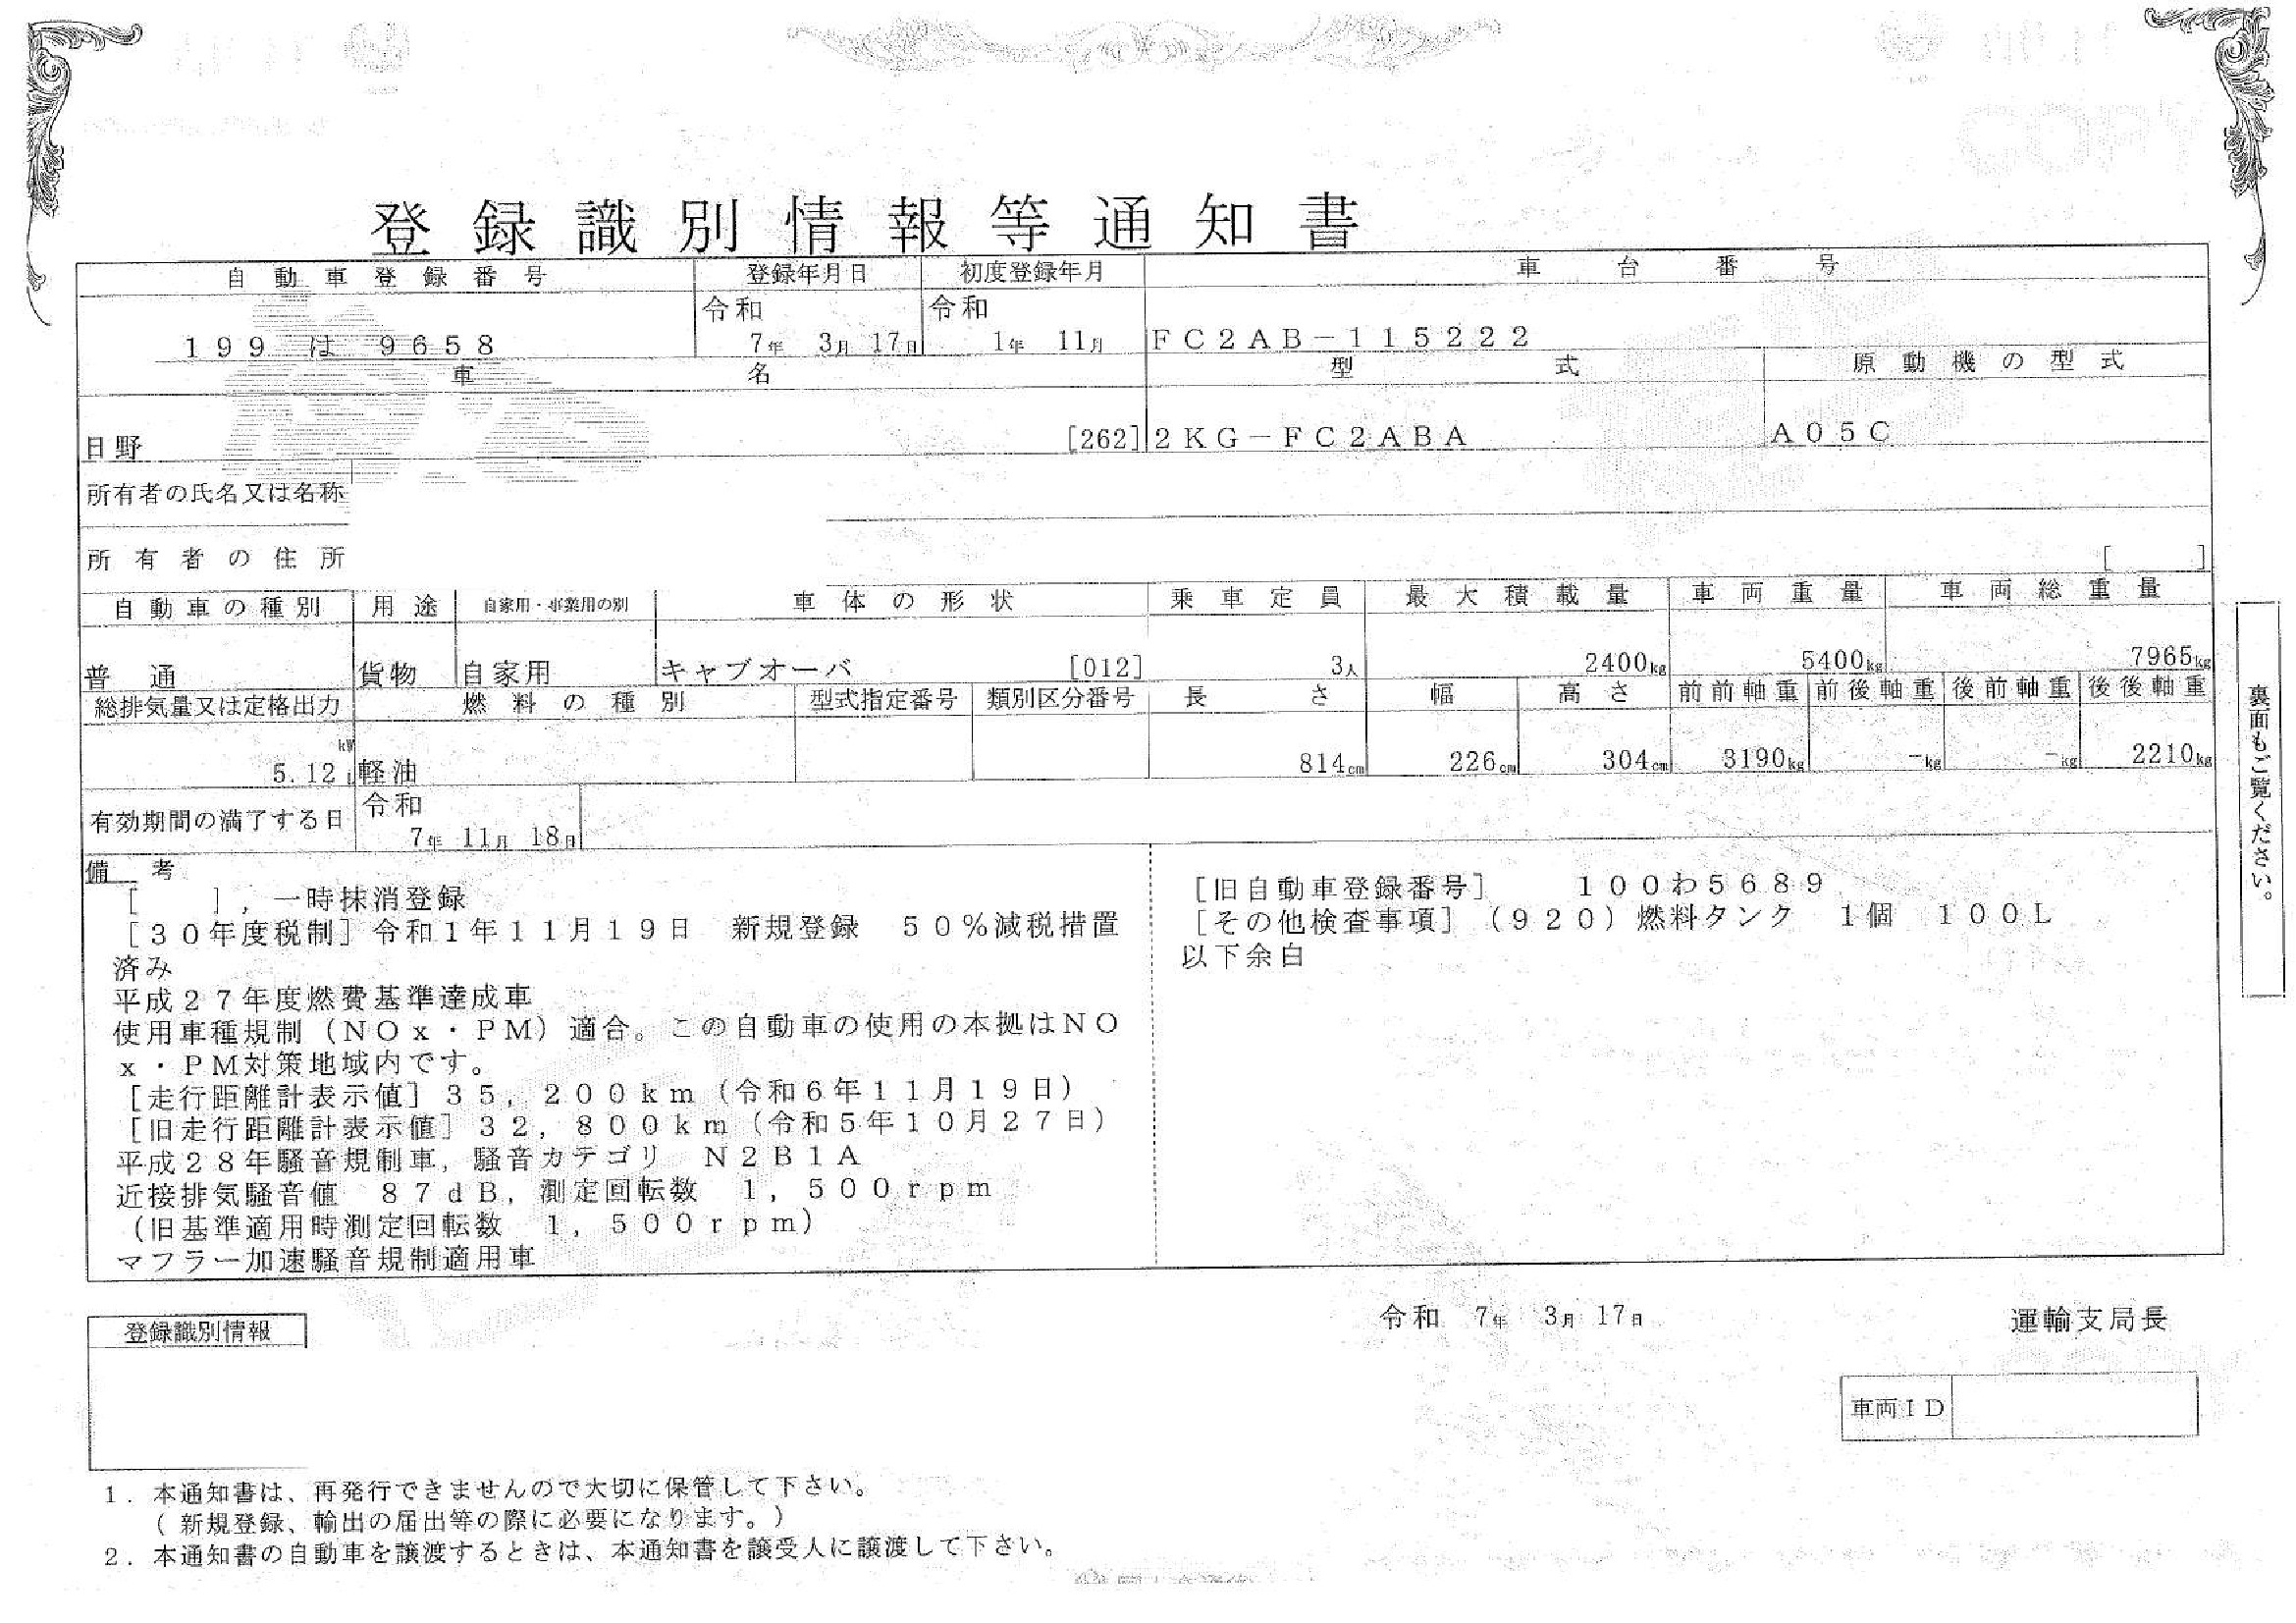 登録識別情報等通知書
自動車登録番号 登録年月日 初度登録年月 車台番号
令和 令和
199 は 9658 7年 3月 17日 1年 11月 FC2AB-115222
車名 型式 原動機の型式
日野 [262] 2KG-FC2ABA A05C
所有者の氏名又は名称
所有者の住所 [ ]
自動車の種別 用途 自家用・事業用の別 車体の形状 乗車定員 最大積載量 車両重量 車両総重量
普通 貨物 自家用 キャブオーバ [012] 3人 2400kg 5400kg 7965kg
総排気量又は定格出力 燃料の種別 型式指定番号 類別区分番号 長さ 幅 高さ 前前軸重 前後軸重 後前軸重 後後軸重
kW
5.12 L 軽油 814cm 226cm 304cm 3190kg -kg -kg 2210kg
有効期間の満了する日 令和
7年 11月 18日
備考
[ ],一時抹消登録
[30年度税制]令和1年11月19日 新規登録 50%減税措置
済み
平成27年度燃費基準達成車
使用車種規制(NOx・PM)適合。この自動車の使用の本拠はNO
x・PM対策地域内です。
[走行距離計表示値]35,200km(令和6年11月19日)
[旧走行距離計表示値]32,800km(令和5年10月27日)
平成28年騒音規制車,騒音カテゴリ N2B1A
近接排気騒音値 87dB,測定回転数 1,500rpm
(旧基準適用時測定回転数 1,500rpm)
マフラー加速騒音規制適用車
[旧自動車登録番号] 100わ5689
[その他検査事項](920)燃料タンク 1個 100L
以下余白
裏面もご覧ください。
令和 7年 3月 17日 運輸支局長
登録識別情報
車両ID
1. 本通知書は、再発行できませんので大切に保管して下さい。
(新規登録、輸出の届出等の際に必要になります。)
2. 本通知書の自動車を譲渡するときは、本通知書を譲受人に譲渡して下さい。